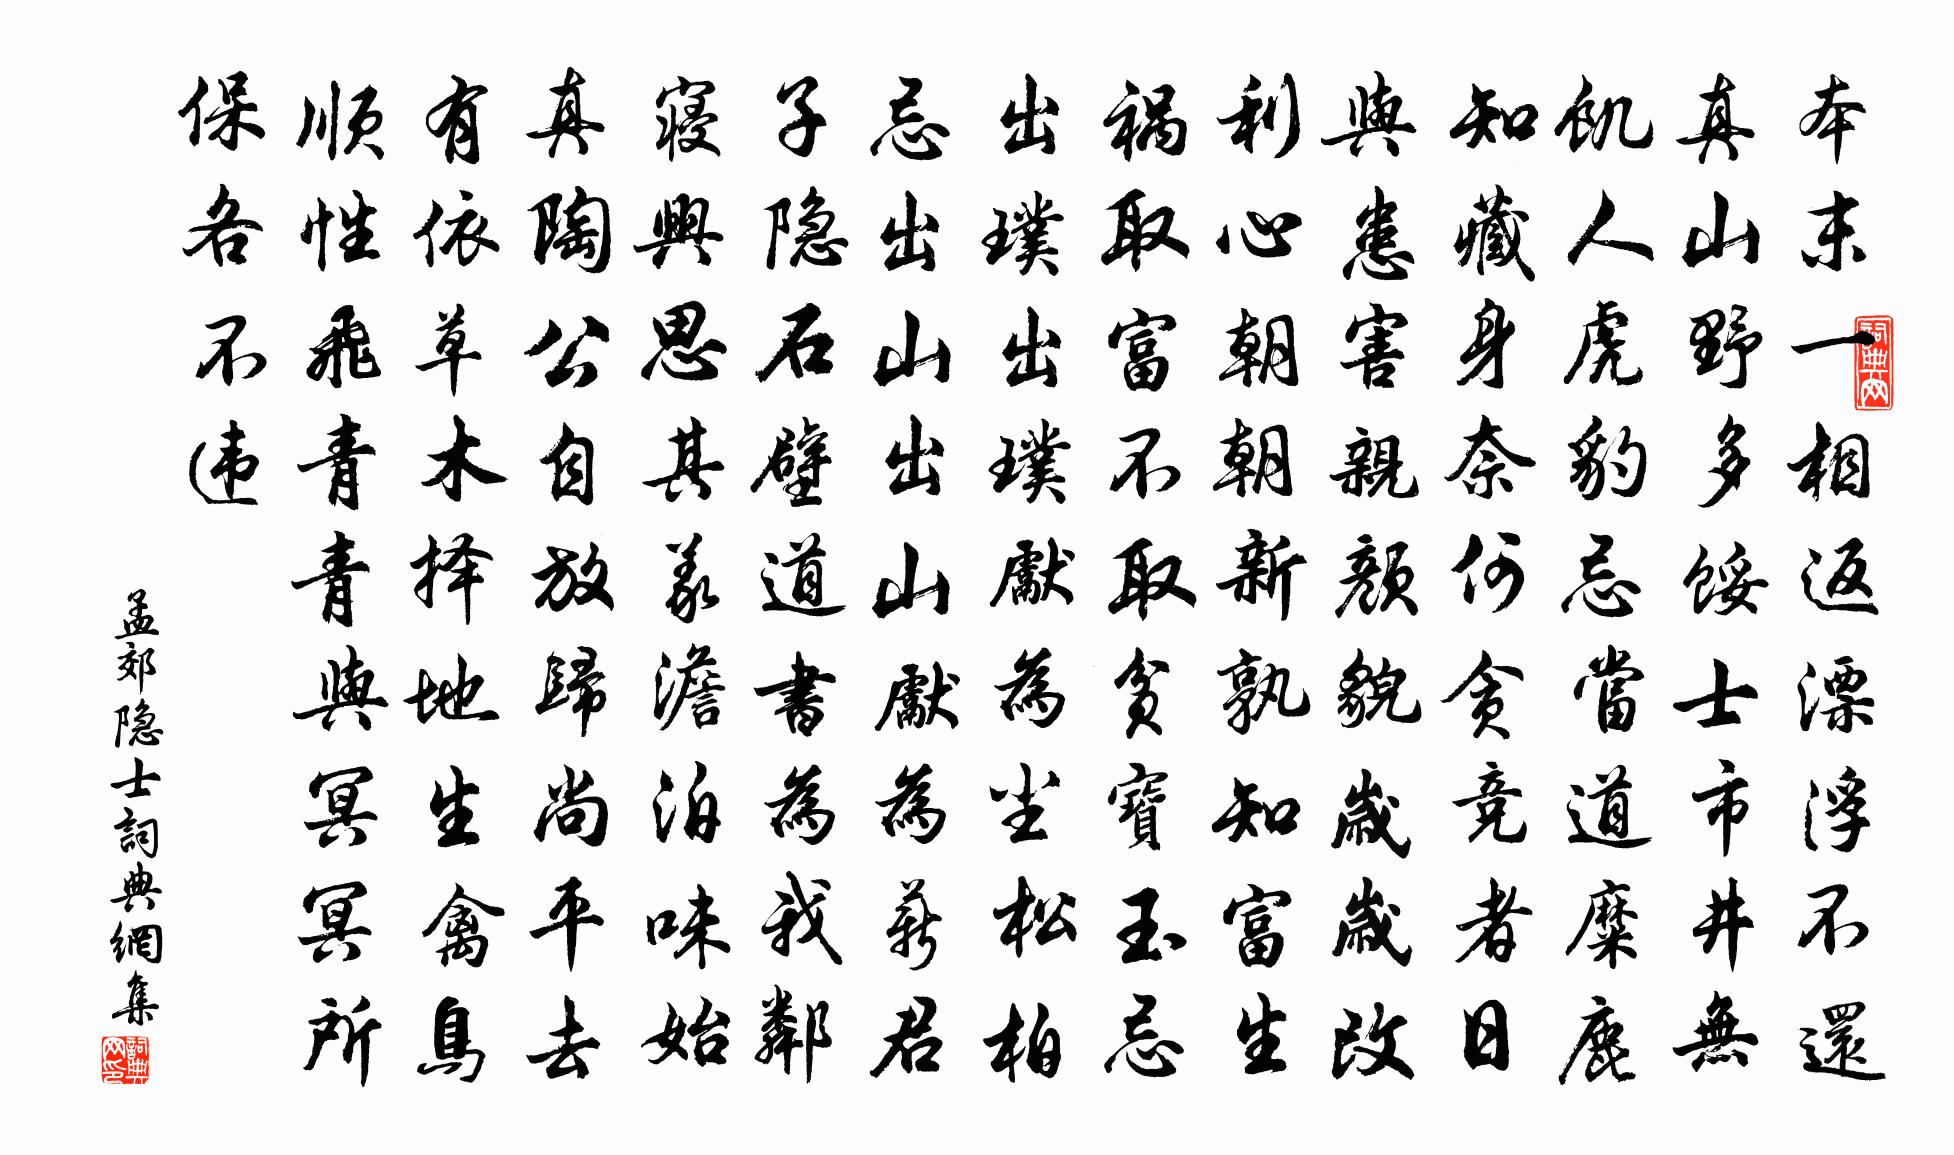 本末一相返漂浮不還
真山野多餒士市井無
飢人虎豹忌當道麋鹿
知藏身奈何貪競者日
與患害親顏貌歲歲改
利心朝朝新孰知富生
祸取富不取貧寶玉忌
出璞出璞獻為坐松柏
忌出山出山獻為薪君
子隐石壁道書為我鄰
寢興思其義澹泊味始
真陶公自放歸尚平去
有依草木择地生禽鳥
顺性飛青青與冥冥所
保各不违
孟郊隐士詞典網集
詞典网
詞典网印